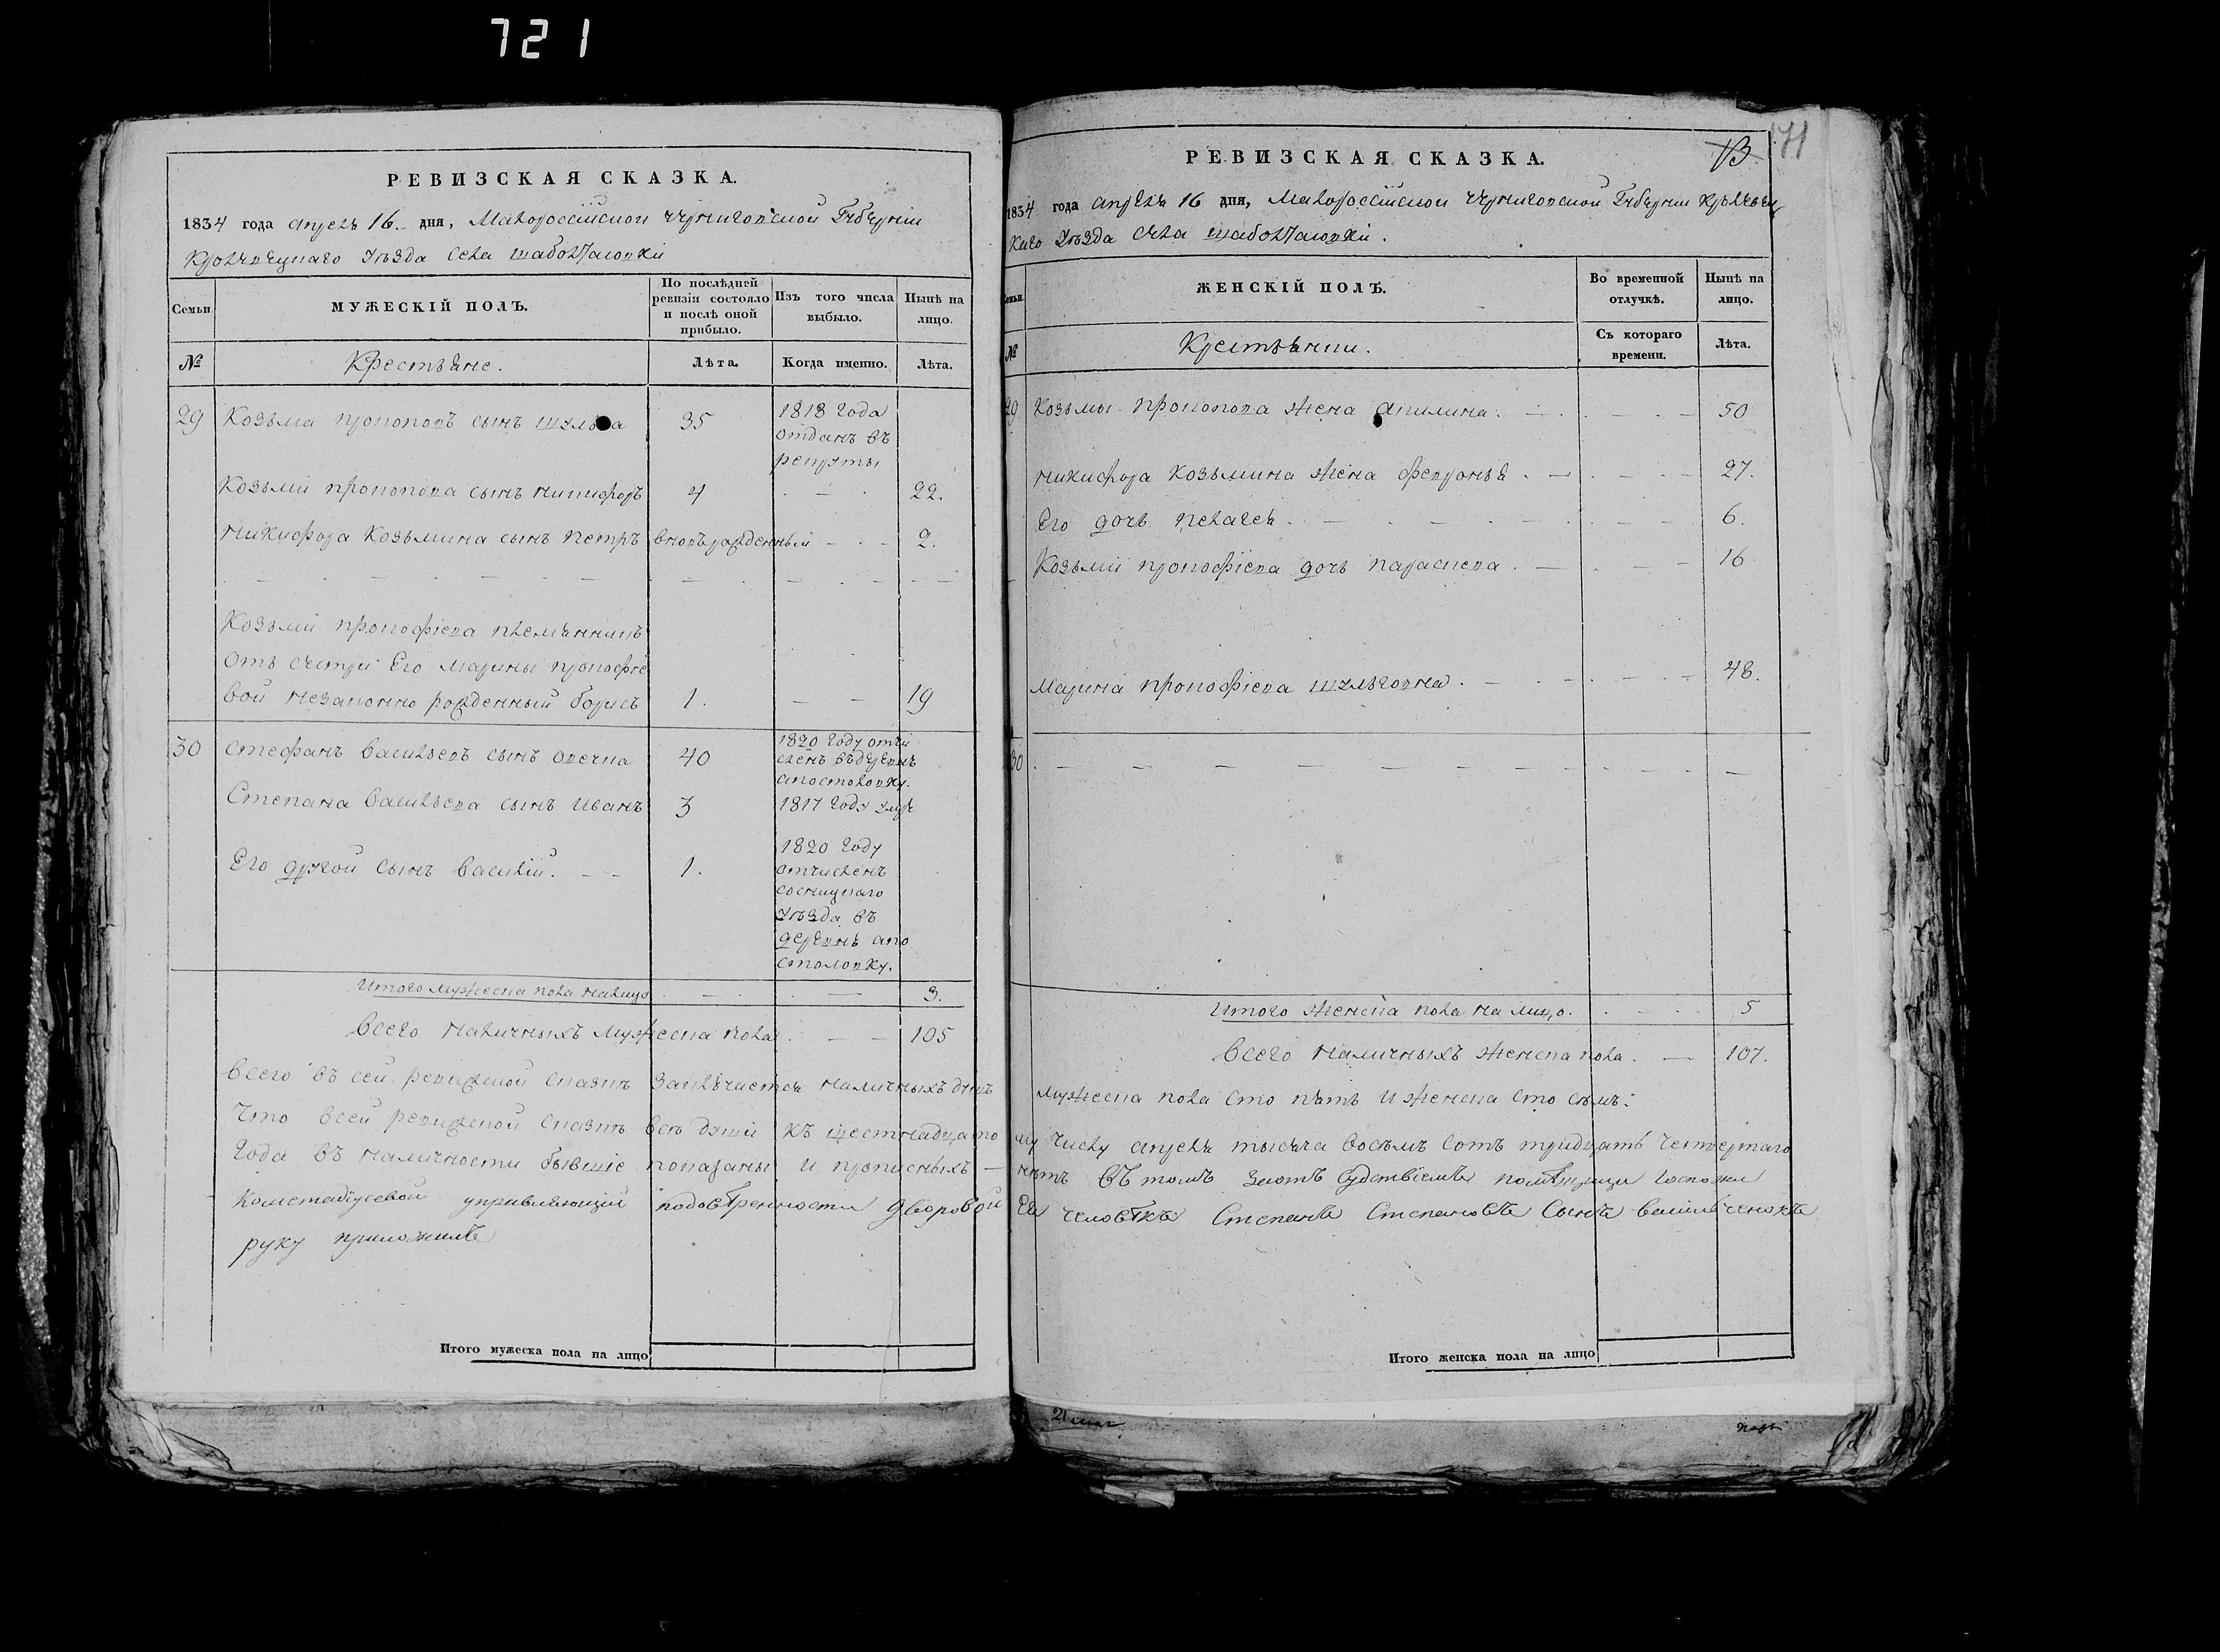 721
РЕВИЗСКАЯ СКАЗКА.
1834 года апреля 16 дня, Малороссийской Черниговской Губернии
Кролевецкаго Уѣзда Села
Семьи
МУЖЕСКІЙ ПОЛЪ.
По послѣдней ревизіи состояло и послѣ оной прибыло.
Изъ того числа выбыло.
Нынѣ на лицо.
№
Крестьяне.
Лѣта.
Когда именно.
Лѣта.
29 Козьма Прокоповъ сынъ 35 1818 года
отданъ въ
рекруты
Козьмы Прокопова сынъ Никифоръ 4 22.
Никифора Козьмина сынъ Петръ вновърожденный 2.
Козьмы Прокофіева племянникъ
отъ сестры Его Марины Прокофіе
вой незаконно рожденный Борисъ 1. 19
30 Стефанъ Васильевъ сынъ 40 1820 году отчи
сленъ въ деревнѣ
апостоловку.
Степана Васильева сынъ Иванъ 3 1817 году умре
Его другой сынъ Василій. 1. 1820 году
отчисленъ
сосницкаго
уѣзда въ
деревнѣ апо
столовку.
Итого мужеска пола налицо 3.
Всего наличныхъ мужеска пола 105
Всего въ сей ревижской сказкѣ заключается наличныхъ душъ
Что всей ревижской сказкѣ всѣ души къ шестнадцато
года въ наличности бывшіе показаны и прописныхъ
управляющій дворовой
руку приложилъ
Итого мужеска пола на лицо
71
13
РЕВИЗСКАЯ СКАЗКА.
1834 года апреля 16 дня, Малороссійской Черниговской Губерніи Кролевец
каго Уѣзда Села
Семьи
ЖЕНСКІЙ ПОЛЪ.
Во временной отлучкѣ.
Нынѣ на лицо.
№
Крестьянки.
Съ котораго времени.
Лѣта.
29 Козьмы Прокопова жена Акилина. 50
Никифора Козьмина жена Февронья. 27.
Его дочь Пелагея. 6.
Козьмы Прокофіева дочь Параскева. 16
Марина Прокофіева 48.
30
Итого женска пола на лицо. 5
Всего наличныхъ женска пола. 107.
мужеска пола сто пять и женска сто семъ:
му числу апреля тысяча восемъ сотъ тридцать четвертаго
нѣтъ въ томъ помѣщицы госпожи
Ея человѣкъ Степанъ Степановъ сынъ
руку
Итого женска пола на лицо